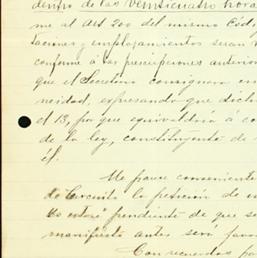 dentro de las veinticuatro hora
me al Art 200 del mismo Cód
taciones y emplazamientos serán
conforme a las prescripciones anterior
que el Secretario consignara en
expresando que dicha
el 13, por que equivaldria a
de la ley, constituyente de
él.
Me parece conveniente
de Circuito la peticion de
pendiente de que se
manifiesto antes será favor
Con recuerdos